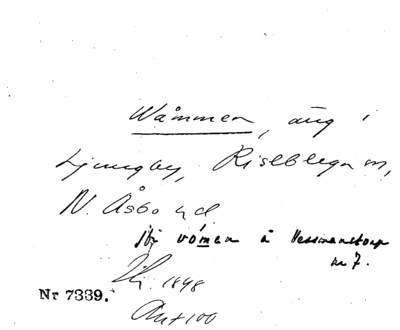 Wåmmen, äng i
Ljungby, Riseberga sn,
N. Åsbo hd.
jfr vómen å Vessmantorp
nr 7.
1848
Nr 7339.
Akt 100